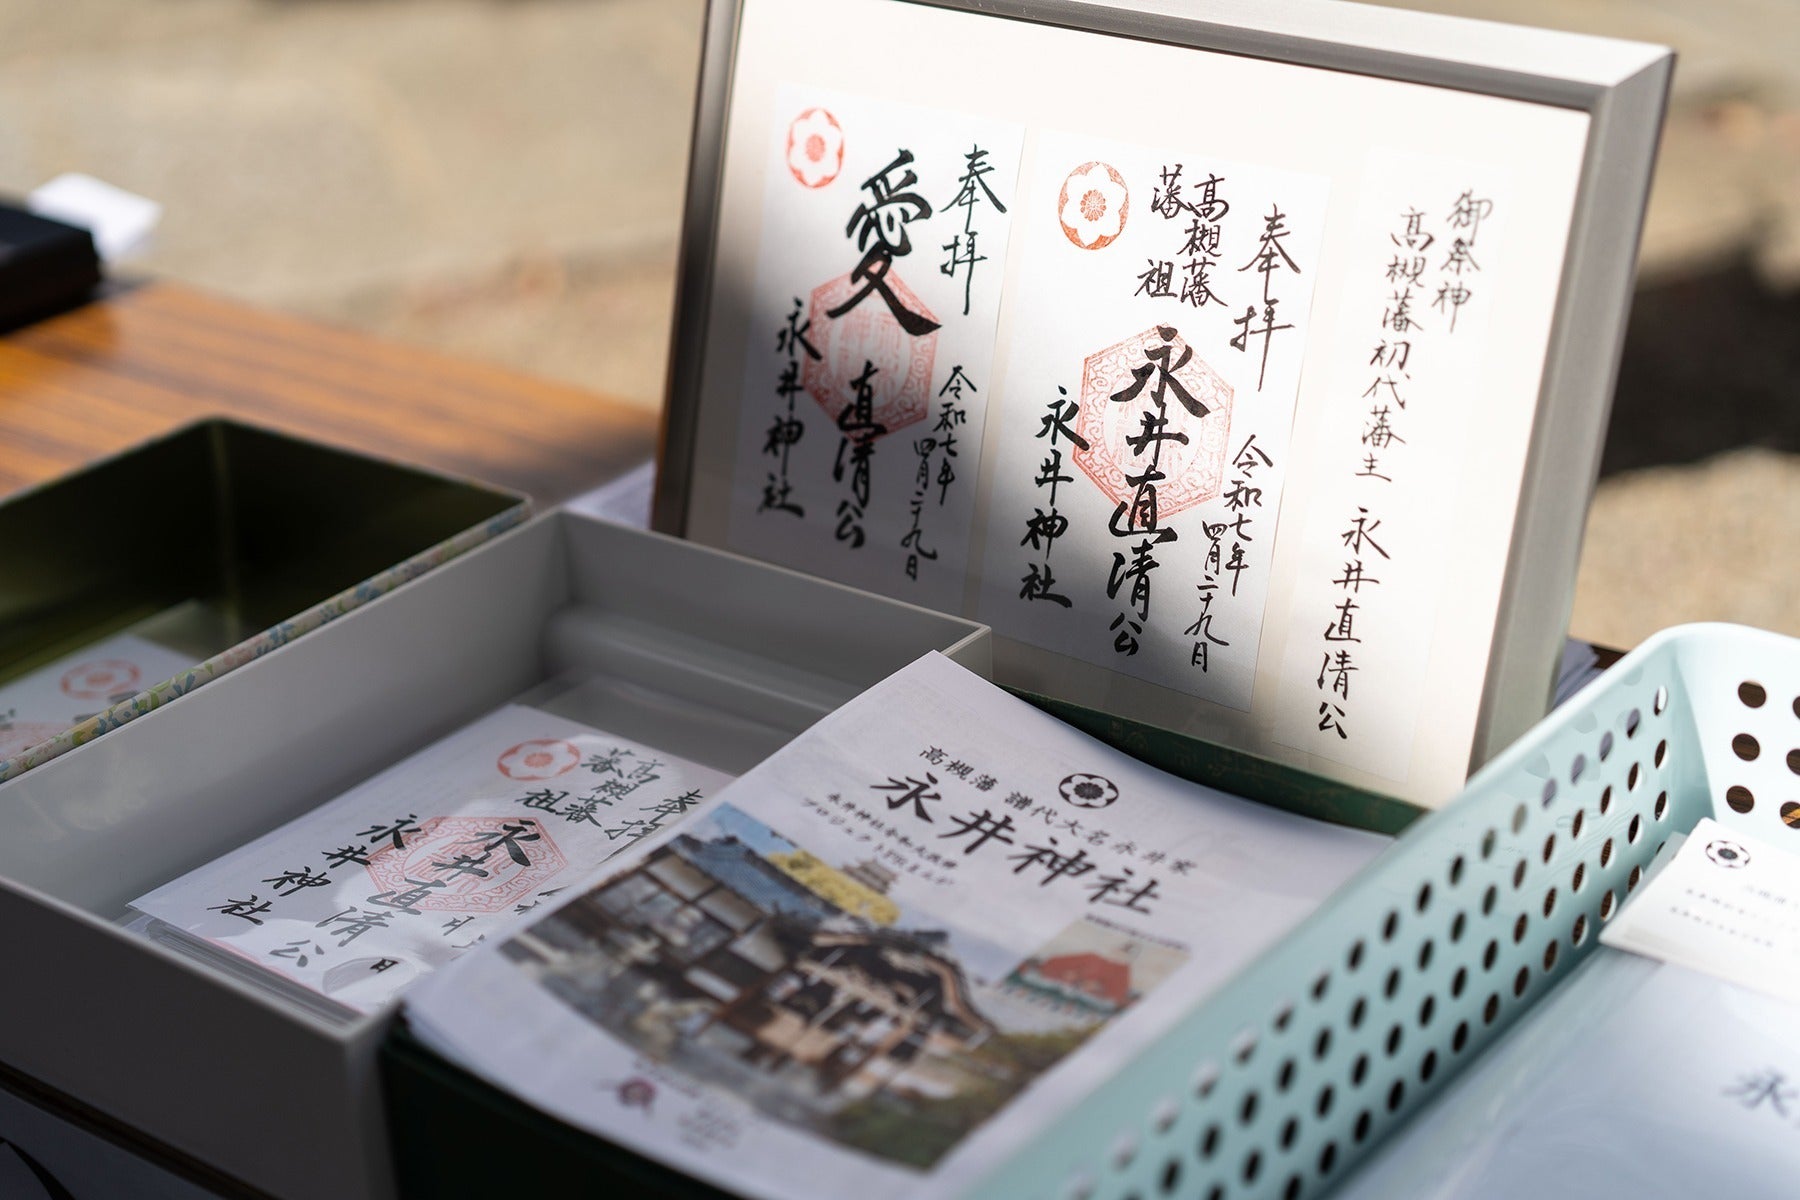 御祭神
高槻藩初代藩主 永井直清公
奉拝
高槻藩
藩祖
永井直清公
令和七年
四月二十九日
永井神社
奉拝
愛
直清公
令和七年
四月二十九日
永井神社
奉拝
高槻藩
藩祖
永井直清公
日
永井神社
高槻藩 譜代大名永井家
永井神社
永井神社令和大改修
プロジェクト
永